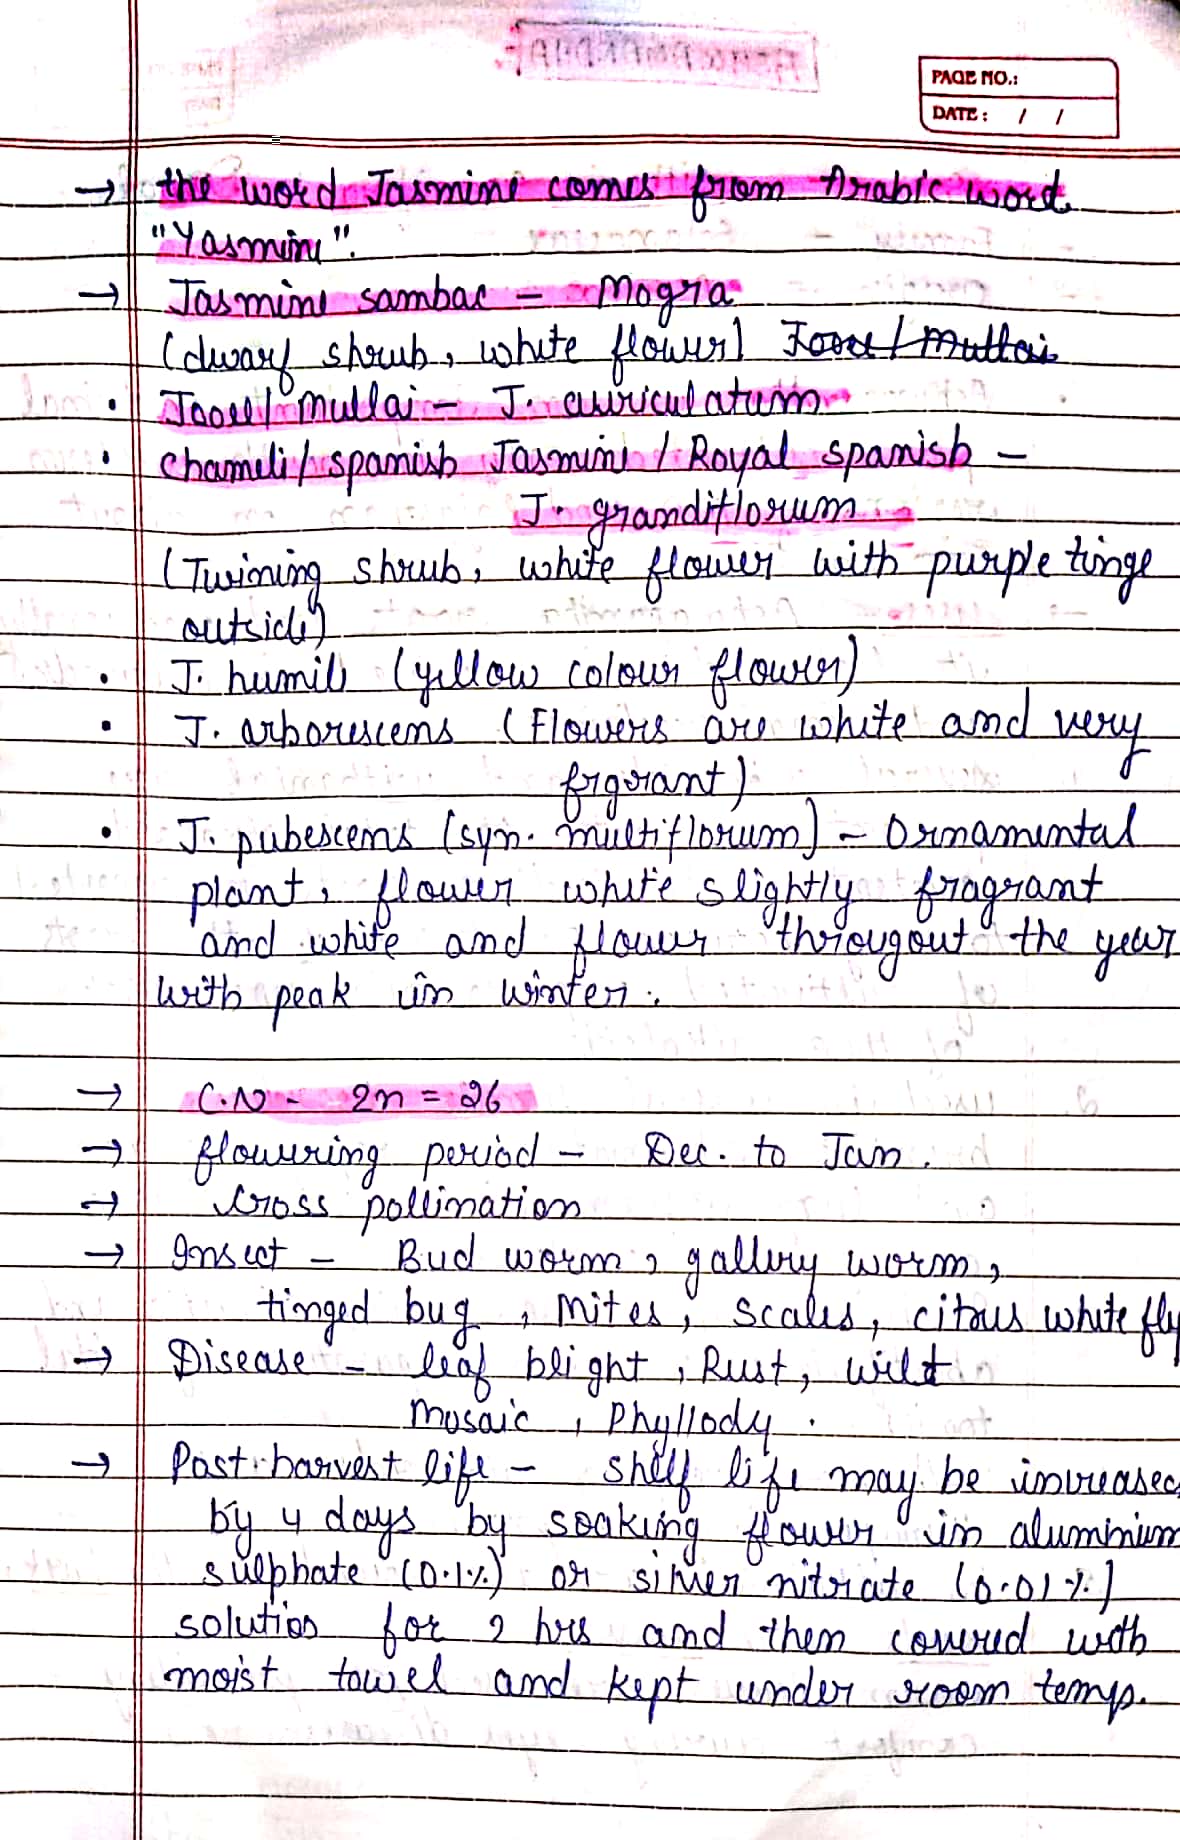 PAGE NO.:
DATE: / /
→ the word Jasmine comes from Arabic word
"Yasmine".
→ Jasmine sambac = Mogra
(dwarf shrub, white flower) Jooee/Mullai
• Jooee/Mullai - J. auriculatum
• Chameli/spanish Jasmine/Royal spanish -
J. grandiflorum
(Twining shrub, white flower with purple tinge
outside)
• J. humile (yellow colour flower)
• J. arborescens (Flowers are white and very
frgrant)
• J. pubescens (syn. multiflorum) - Ornamental
plant, flower white slightly fragrant
and white and flower througout the year
with peak in winter.
→ C.N - 2n = 26
→ flowering period - Dec. to Jan.
→ Cross pollination
→ Insect - Bud worm, gallery worm,
tinged bug, Mites, Scales, citrus white fly
→ Disease - leaf blight, Rust, wilt
Mosaic, Phyllody.
→ Post-harvest life - shelf life may be increased
by 4 days by soaking flower in aluminium
sulphate (0.1%) or silver nitrate (0.01%)
solution for 2 hrs and then covered with
moist towel and kept under room temp.